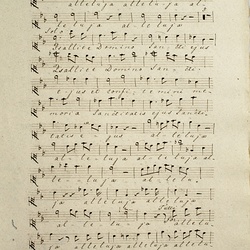 alleluja alleluja al-
leluja alleluja
Solo
Psallite Domino Sancti ejus
Psallite Domino Sancti
ejus et confi-temini me-
moria Sanctitatis ejus Sanct
tatis ejus alleluja
al-le-luja alleluja al-
le-luja allelu-
ja alleluja alleluja
al-le-lu-ja alleluja
alleluja alleluja allelu